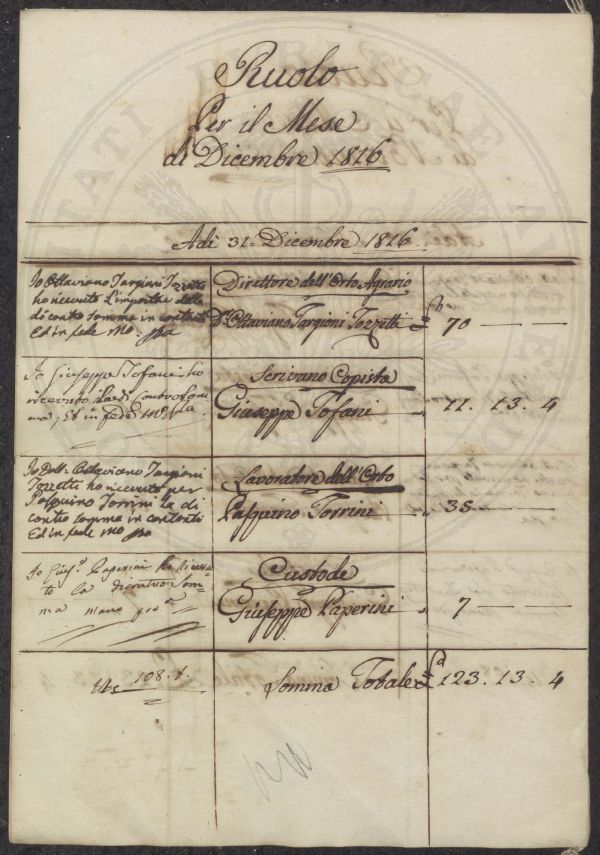 Ruolo
Per il Mese
di Dicembre 1816
Adì 31. Dicembre 1816
Io Ottaviano Targioni Tozzetti
ho ricevuto l'importar della
di contro somma in contanti
Ed in fede mo. ppa
Direttore dell'Orto Agrario
Dr. Ottaviano Targioni Tozzetti £ 70 — —
Io Giuseppe Tofani ho
ricevuto la di contro som
ma, Ed in fede
Scrivano Copista
Giuseppe Tofani 11. 13. 4
Io Dott. Ottaviano Targioni
Tozzetti ho ricevuto per
Pasquino Torrini la di
contro somma in contanti
Ed in fede mo ppa
Lavoratore dell'Orto
Pasquino Torrini 35 — —
Io Giuse. Paperini ho ricevu
to la dicontro Som
ma mano pra
Custode
Giuseppe Paperini 7 — —
108.
Somma Totale £ 123. 13. 4